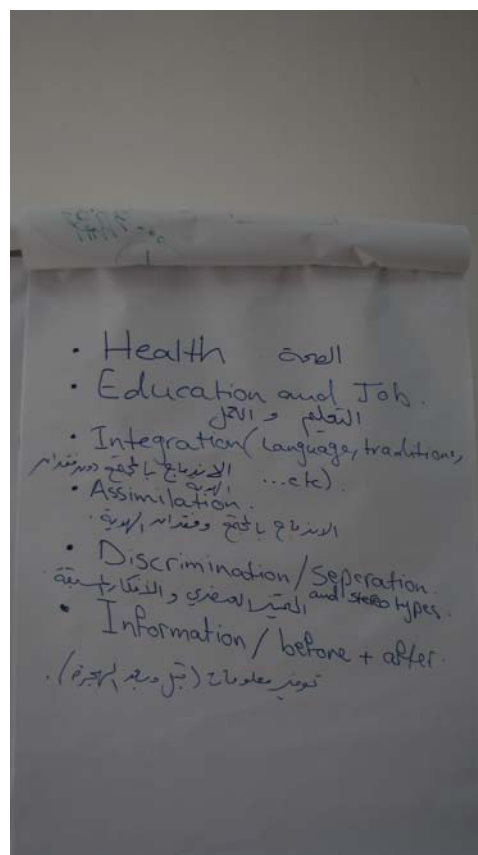 • Health الصحة
• Education and Job.
التعليم و العمل
• Integration (Language, traditions,
الاندماج بالمجتمع دون فقدان
الهوية ...etc).
• Assimilation.
الاندماج بالمجتمع وفقدان الهوية.
• Discrimination / Seperation.
and stereotypes.
التمييز العنصري و الأفكار المسبقة
• Information / before + after.
توفير معلومات (قبل وبعد الهجرة).